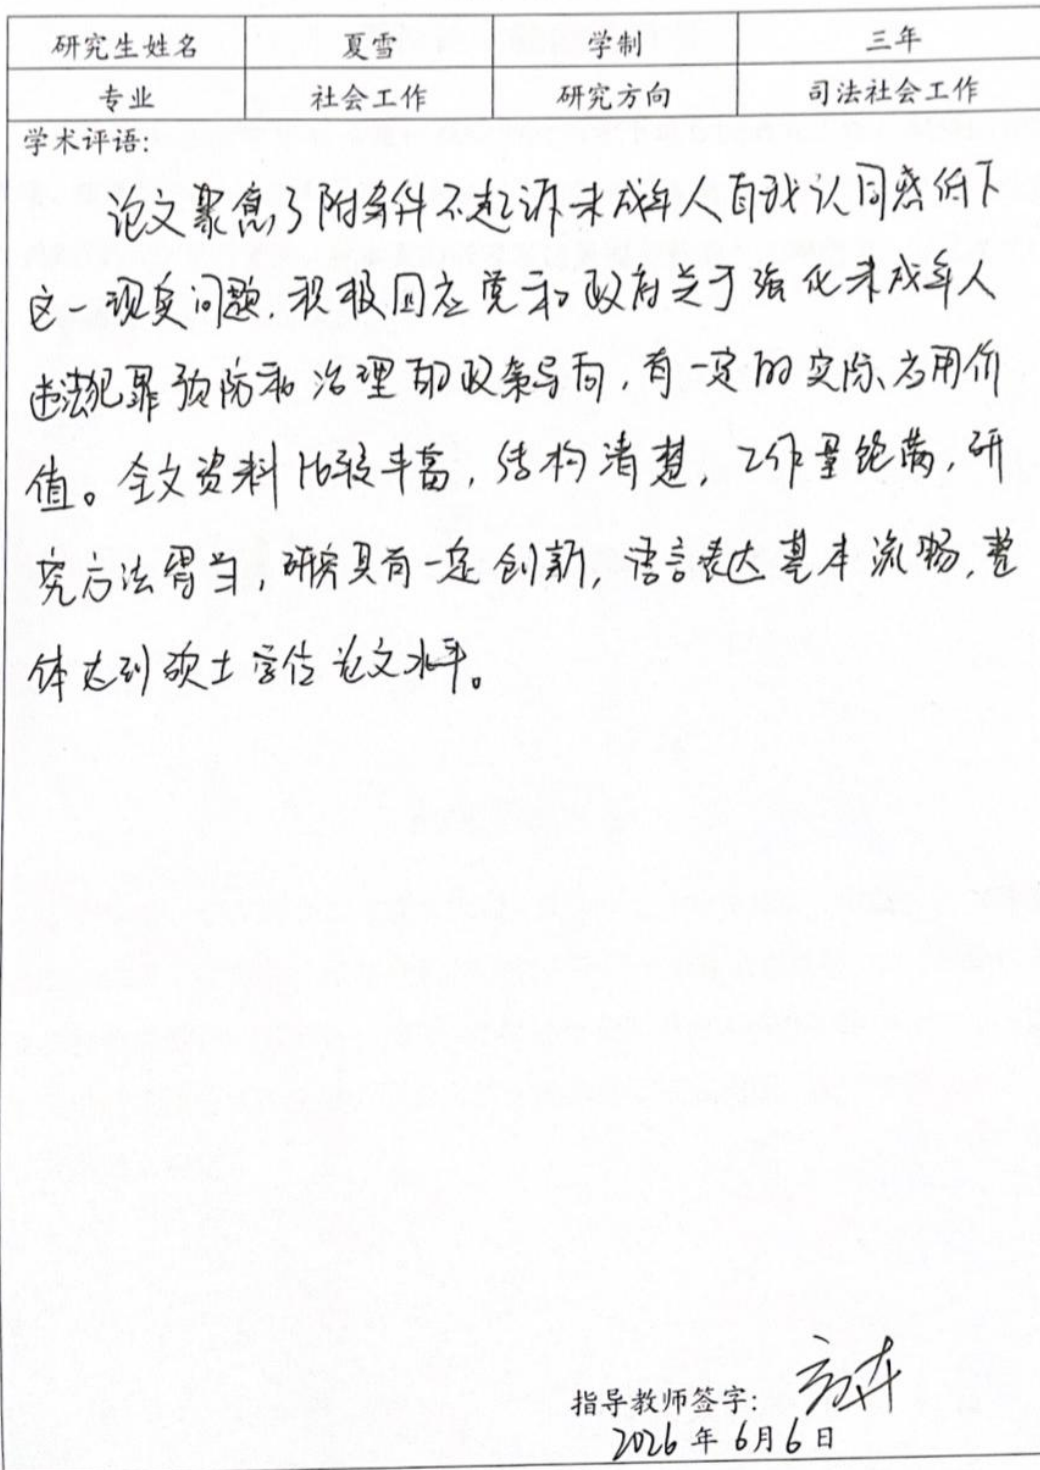 研究生姓名 夏雪 学制 三年
专业 社会工作 研究方向 司法社会工作
学术评语:
论文聚焦了附条件不起诉未成年人自我认同感低下
这一现实问题,积极回应党和政府关于强化未成年人
违法犯罪预防和治理的政策导向,有一定的实际应用价
值。全文资料比较丰富,结构清楚,工作量饱满,研
究方法得当,研究具有一定创新,语言表达基本流畅,整
体达到硕士学位论文水平。
指导教师签字:
2026年6月6日